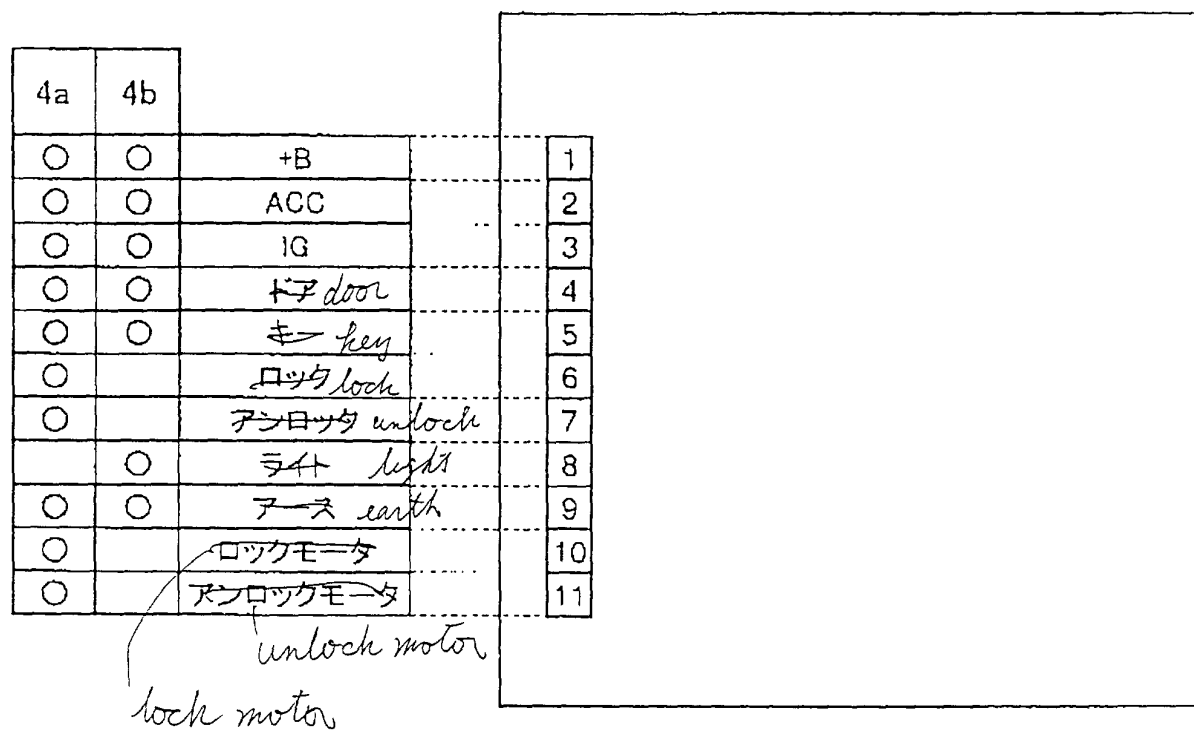 4a 4b
○ ○ +B 1
○ ○ ACC 2
○ ○ IG 3
○ ○ ドア door 4
○ ○ キー key 5
○ ロック lock 6
○ アンロック unlock 7
○ ライト light 8
○ ○ アース earth 9
○ ロックモータ 10
○ アンロックモータ 11
unlock motor
lock motor